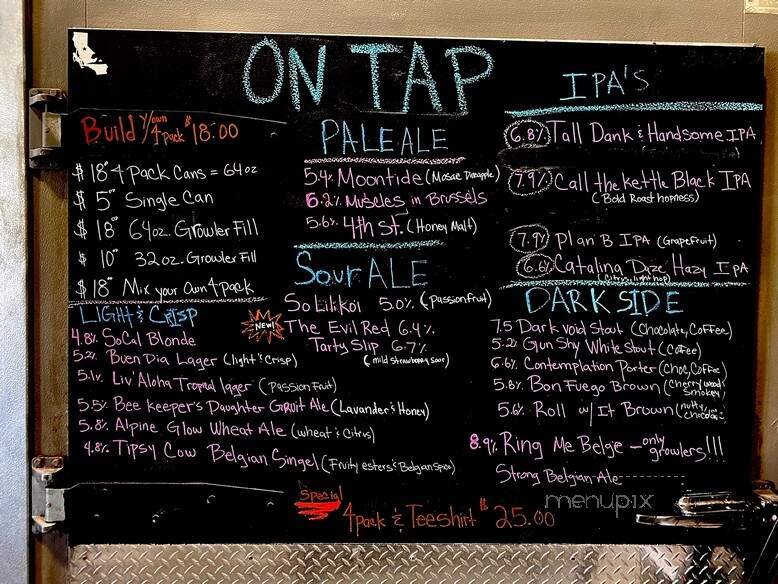 ON TAP
Build Y/own
4pack $18.00
$18" 4 pack Cans = 64oz
$5" Single Can
$18" 64oz. Growler Fill
$10" 32oz. Growler Fill
$18" Mix your Own 4pack
LIGHT & CRISP
4.8% SoCal Blonde
5.2% Buen Dia Lager (light & Crisp)
5.1% Liv' Aloha Tropical lager (Passion Fruit)
5.5% Bee keeper's Daughter Gruit Ale (Lavander & Honey)
5.8% Alpine Glow Wheat Ale (wheat & Citrus)
4.8% Tipsy Cow Belgian Singel (Fruity esters & Belgian spice)
PALE ALE
5.4% Moontide (Mosaic Pineapple)
6.2% Muscles in Brussels
5.6% 4th St. (Honey Malt)
Sour ALE
So Lilikoi 5.0% (Passionfruit)
NEW!
The Evil Red 6.4%
Tarty Slip 6.7%
(mild strawberry sour)
IPA'S
6.8% Tall Dank & Handsome IPA
7.9% Call the kettle Black IPA
(Bold Roast hopness)
7.9% Plan B IPA (Grapefruit)
6.6% Catalina Daze Hazy IPA
(Citrus, light hop)
DARK SIDE
7.5 Dark Void Stout (Chocolate, Coffee)
5.2% Gun Shy White Stout (Coffee)
6.6% Contemplation Porter (Choc, Coffee)
5.8% Bon Fuego Brown (Cherrywood Smokey)
5.6% Roll w/ It Brown (nutty, chocolate)
8.9% Ring Me Belgie - only growlers!!!
Strong Belgian Ale
Special
4pack & Teeshirt $25.00
menupix